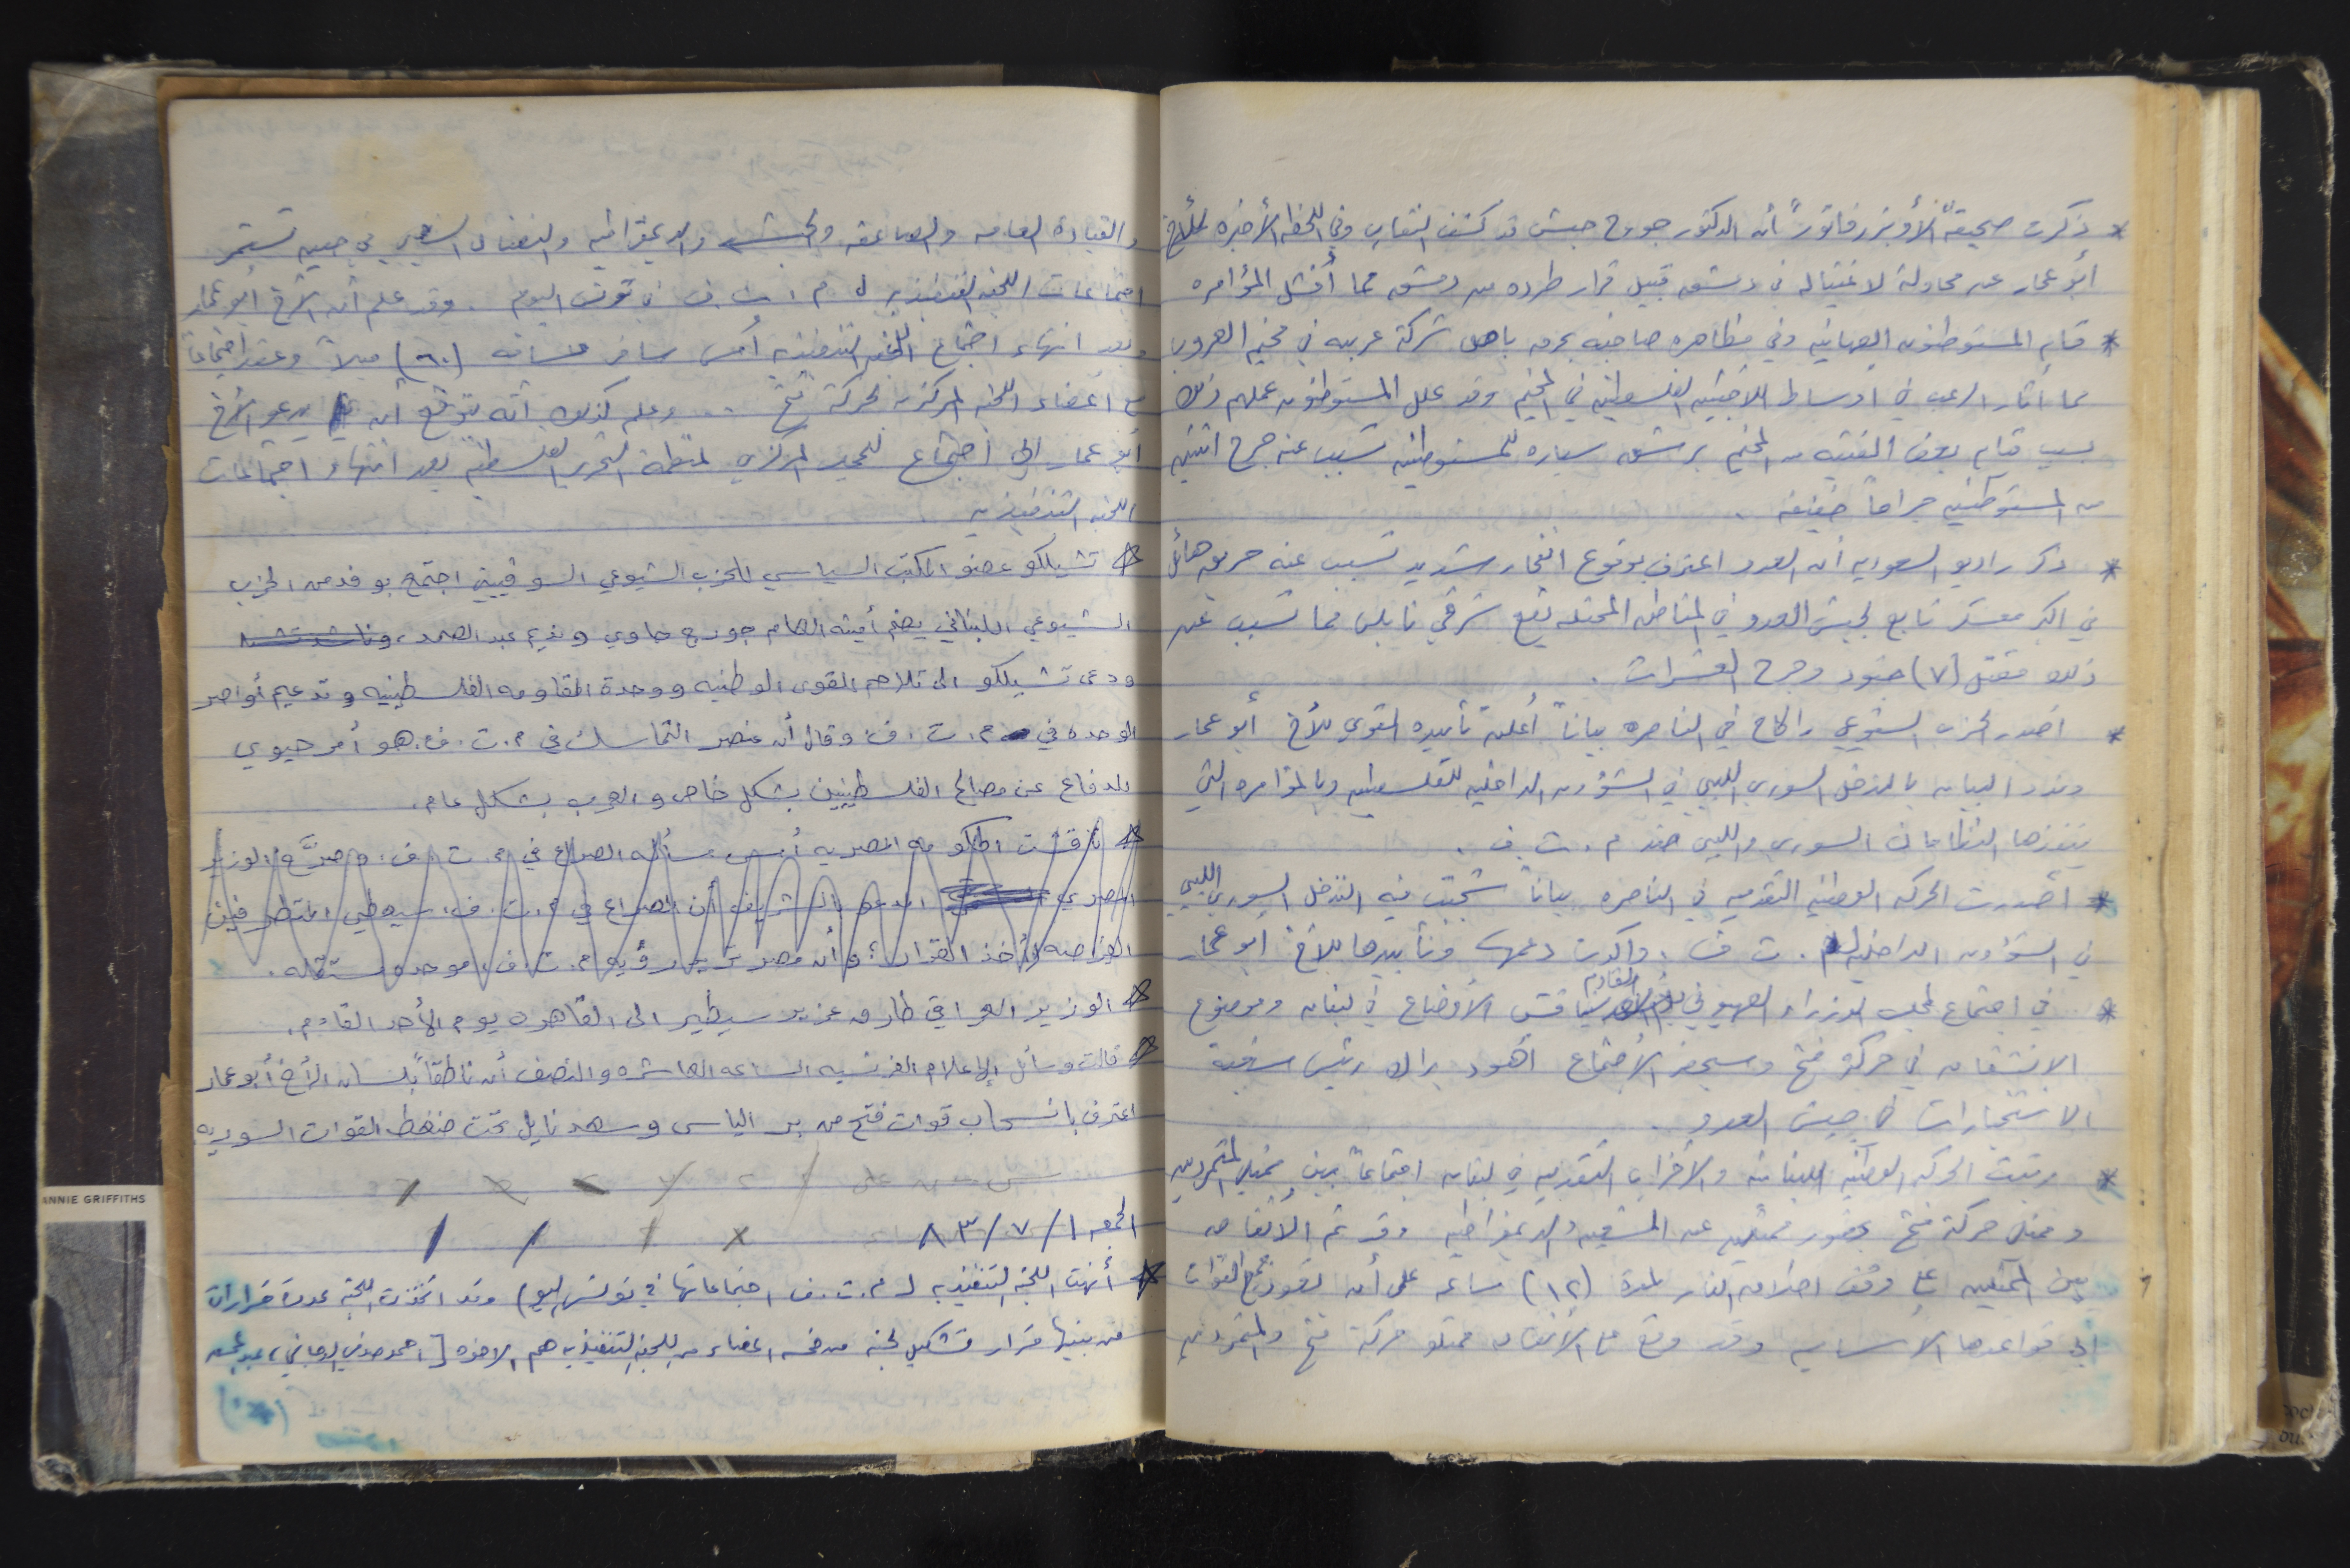 * ذكرت صحيفة "الأوبزرفاتور" أن الدكتور جورج حبش قد كشف النقاب وفي اللحظه الأخيره للأخ
أبو عمار عن محاولة لاغتياله في دمشق قبيل قرار طرده من دمشق مما أفشل المؤامره
* قام المستوطنون الصهاينه وفي مظاهره صاخبه بحرق باص شركة عربيه في مخيم العروب
مما أثار الرعب في اوساط اللاجئين الفلسطينين في المخيم وقد علل المستوطنون عملهم ذلك
بسبب قيام بعض الفتيه من المخيم برشق سياره للمستوطنين تسبب عنه جرح اثنين
من المستوطنين جراحاً خفيفه .
* ذكر راديو السعوديه أن العدو اعترف بوقوع انفجار شديد تسبب عنه حريق هائل
في اكبر معسكر تابع لجيش العدو في المناطق المحتله يقع شرقي نابلس مما تسبب عن
ذلك مقتل (٧) جنود وجرح العشرات .
* اصدر الحزب الشيوعي راكاح في الناصره بياناً أعلن تأييده القوي للأخ أبو عمار
وندد البيان بالتدخل السوري الليبي في الشؤون الداخليه للفلسطينين وبالمؤامره التي
ينفذها النظامان السوري والليبي ضد م . ت . ف .
* أصدرت الحركه الوطنيه التقدميه في الناصره بياناً شجبت فيه التدخل السوري الليبي
في الشؤون الداخليه ل م . ت . ف . وأكدت دعمها وتأييدها للأخ ابو عمار
* في اجتماع لمجلس الوزراء الصهيوني يوم الأحد القادم سيناقش الأوضاع في لبنان وموضوع
الانشقاق في حركة فتح وسيحضر الأجتماع اهود براك رئيس شعبة
الاستخبارات في جيش العدو .
* رتبت الحركه الوطنيه اللبنانيه والأحزاب التقدميه في لبنان اجتماعاً بين ممثلي المتمردين
وممثل حركة فتح بحضور ممثلين عن الشعبيه والديمقراطيه وقد تم الاتفاق
بين الممثلين على وقف اطلاق النار لمدة (١٢) ساعه على أن تعود جميع القوات
إلى قواعدها الأساسيه وقد وقع على الأتفاق ممثلو حركة فتح والمتمردين
والقيادة العامه والصاعقه والديمقراطيه والنضال الشعبي في حين تستمر
اجتماعات اللجنه التنفيذيه ل م . ت . ف في تونس اليوم . وقد علم أن الأخ أبو عمار
وبعد انتهاء اجتماع اللجنه التنفيذيه أمس سافر مسافه (٦٠) ميلاً وعقد اجتماعاً
مع اعضاء اللجنه المركزيه لحركة فتح ... وعلم كذلك أنه يتوقع أن يدعو الأخ
أبو عمار الى اجتماع للمجلس المركزي لمنظمة التحرير الفلسطينيه بعد انتهاء اجتماعات
اللجنه التنفيذيه .
* تشيلكو عضو المكتب السياسي للحزب الشيوعي السوفييتي اجتمع بوفد من الحزب
الشيوعي اللبناني يضم أمينه العام جورج حاوي ونديم عبد الصمد ،
ودعى تشيلكو الى تلاحم القوى الوطنيه ووحدة المقاومه الفلسطينيه وتدعيم أواصر
الوحده في م . ت . ف . وقال أن عنصر التماسك في م . ت . ف . هو أمر حيوي
للدفاع عن مصالح الفلسطينيين بشكل خاص والعرب بشكل عام .
* ناقشت الحكومه المصريه أمس مسألة الصراع في م . ت . ف . وصرَّح الوزير
المصري المدعو الشريف أن الصراع في م . ت . ف . سيعطي المتطرفين
الفرصه لأخذ القرار ؛ وأن مصر تريد رؤية م . ت . ف . موحده مستقله .
* الوزير العراقي طارق عزيز سيطير الى القاهره يوم الأحد القادم .
* قالت وسائل الإعلام الفرنسيه الساعه العاشره والنصف أن ناطقاً بلسان الأخ أبو عمار
اعترف بانسحاب قوات فتح من بر الياس وسعد نايل تحت ضغط القوات السوريه
الجمعه ١ / ٧ / ٨٣
* أنهت اللجنه التنفيذيه ل م . ت . ف اجتماعاتها في تونس اليوم وقد اتخذت اللجنه عدة قرارات
من بينها قرار تشكيل لجنه من خمسه اعضاء من اللجنه التنفيذيه هم الاخوه [ احمد صدقي الدجاني ،
ANNIE GRIFFITHS